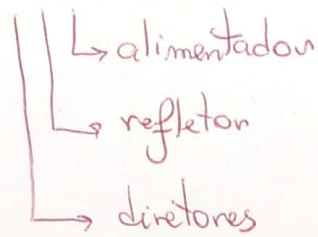 alimentador
refletor
diretores